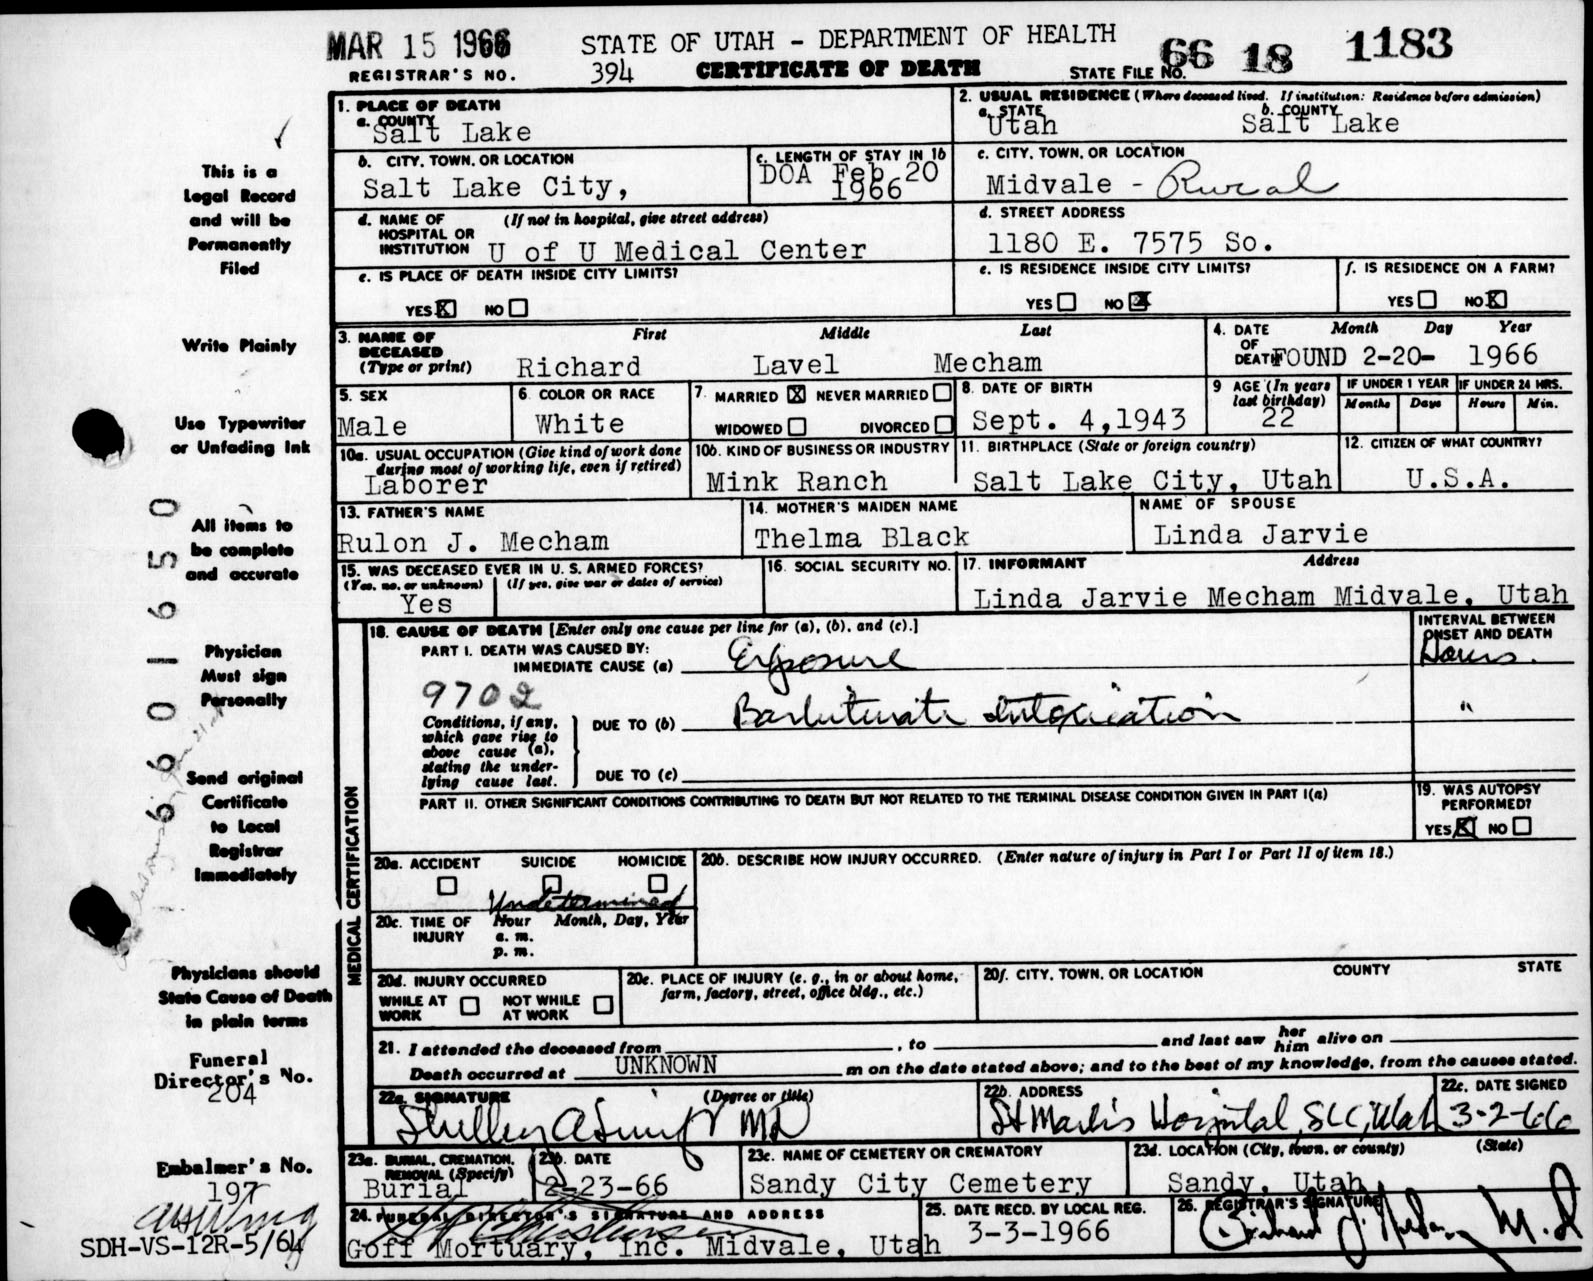 MAR 15 1966
STATE OF UTAH - DEPARTMENT OF HEALTH
66 18 1183
REGISTRAR'S NO. 394
CERTIFICATE OF DEATH
STATE FILE NO.
1. PLACE OF DEATH
a. COUNTY
Salt Lake
2. USUAL RESIDENCE (Where deceased lived. If institution: Residence before admission)
a. STATE b. COUNTY
Utah Salt Lake
b. CITY, TOWN, OR LOCATION
Salt Lake City,
c. LENGTH OF STAY IN 1b
DOA Feb 20
1966
c. CITY, TOWN, OR LOCATION
Midvale - Rural
d. NAME OF (If not in hospital, give street address)
HOSPITAL OR
INSTITUTION U of U Medical Center
d. STREET ADDRESS
1180 E. 7575 So.
e. IS PLACE OF DEATH INSIDE CITY LIMITS?
YES X NO
e. IS RESIDENCE INSIDE CITY LIMITS?
YES NO X
f. IS RESIDENCE ON A FARM?
YES NO X
3. NAME OF DECEASED (Type or print)
First Middle Last
Richard Lavel Mecham
4. DATE OF DEATH
Month Day Year
FOUND 2-20- 1966
5. SEX
Male
6. COLOR OR RACE
White
7. MARRIED X NEVER MARRIED
WIDOWED DIVORCED
8. DATE OF BIRTH
Sept. 4,1943
9 AGE (In years last birthday)
22
IF UNDER 1 YEAR IF UNDER 24 HRS.
Months Days Hours Min.
10a. USUAL OCCUPATION (Give kind of work done
during most of working life, even if retired)
Laborer
10b. KIND OF BUSINESS OR INDUSTRY
Mink Ranch
11. BIRTHPLACE (State or foreign country)
Salt Lake City, Utah
12. CITIZEN OF WHAT COUNTRY?
U.S.A.
13. FATHER'S NAME
Rulon J. Mecham
14. MOTHER'S MAIDEN NAME
Thelma Black
NAME OF SPOUSE
Linda Jarvie
15. WAS DECEASED EVER IN U. S. ARMED FORCES?
(Yes, no, or unknown) (If yes, give war or dates of service)
Yes
16. SOCIAL SECURITY NO.
17. INFORMANT Address
Linda Jarvie Mecham Midvale, Utah
MEDICAL CERTIFICATION
18. CAUSE OF DEATH [Enter only one cause per line for (a), (b), and (c).]
INTERVAL BETWEEN
ONSET AND DEATH
PART I. DEATH WAS CAUSED BY:
IMMEDIATE CAUSE (a) Exposure Hours.
9702
Conditions, if any,
which gave rise to
above cause (a),
stating the under-
lying cause last.
DUE TO (b) Barbiturate intoxication "
DUE TO (c)
PART II. OTHER SIGNIFICANT CONDITIONS CONTRIBUTING TO DEATH BUT NOT RELATED TO THE TERMINAL DISEASE CONDITION GIVEN IN PART I(a)
19. WAS AUTOPSY
PERFORMED?
YES X NO
20a. ACCIDENT SUICIDE HOMICIDE
Undetermined
20b. DESCRIBE HOW INJURY OCCURRED. (Enter nature of injury in Part I or Part II of item 18.)
20c. TIME OF INJURY
Hour Month, Day, Year
a. m.
p. m.
20d. INJURY OCCURRED
WHILE AT WORK NOT WHILE AT WORK
20e. PLACE OF INJURY (e. g., in or about home,
farm, factory, street, office bldg., etc.)
20f. CITY, TOWN, OR LOCATION COUNTY STATE
21. I attended the deceased from , to and last saw her him alive on
Death occurred at UNKNOWN m on the date stated above; and to the best of my knowledge, from the causes stated.
22a. SIGNATURE (Degree or title)
MD
22b. ADDRESS
St Mark's Hospital, SLC, Utah
22c. DATE SIGNED
3-2-66
23a. BURIAL, CREMATION,
REMOVAL (Specify)
Burial
23b. DATE
2-23-66
23c. NAME OF CEMETERY OR CREMATORY
Sandy City Cemetery
23d. LOCATION (City, town, or county) (State)
Sandy, Utah
24. FUNERAL DIRECTOR'S SIGNATURE AND ADDRESS
Goff Mortuary, Inc. Midvale, Utah
25. DATE RECD. BY LOCAL REG.
3-3-1966
26. REGISTRAR'S SIGNATURE
M.D
This is a
Legal Record
and will be
Permanently
Filed
Write Plainly
Use Typewriter
or Unfading Ink
All items to
be complete
and accurate
Physician
Must sign
Personally
Send original
Certificate
to Local
Registrar
Immediately
Physicians should
State Cause of Death
in plain terms
Funeral
Director's No.
204
Embalmer's No.
197
SDH-VS-12R-5/64
6601650